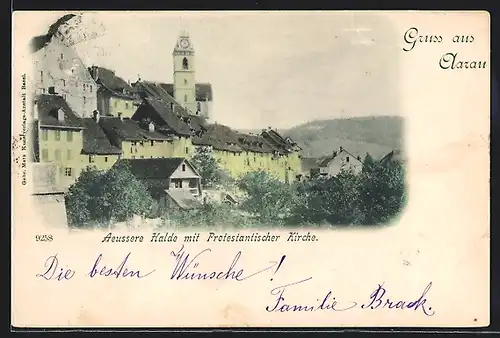 Gruss aus
Aarau
Gebr. Metz Kunstverlags-Anstalt Basel.
9258
Aeussere Halde mit Protestantischer Kirche.
Die besten Wünsche!
Familie Brack,